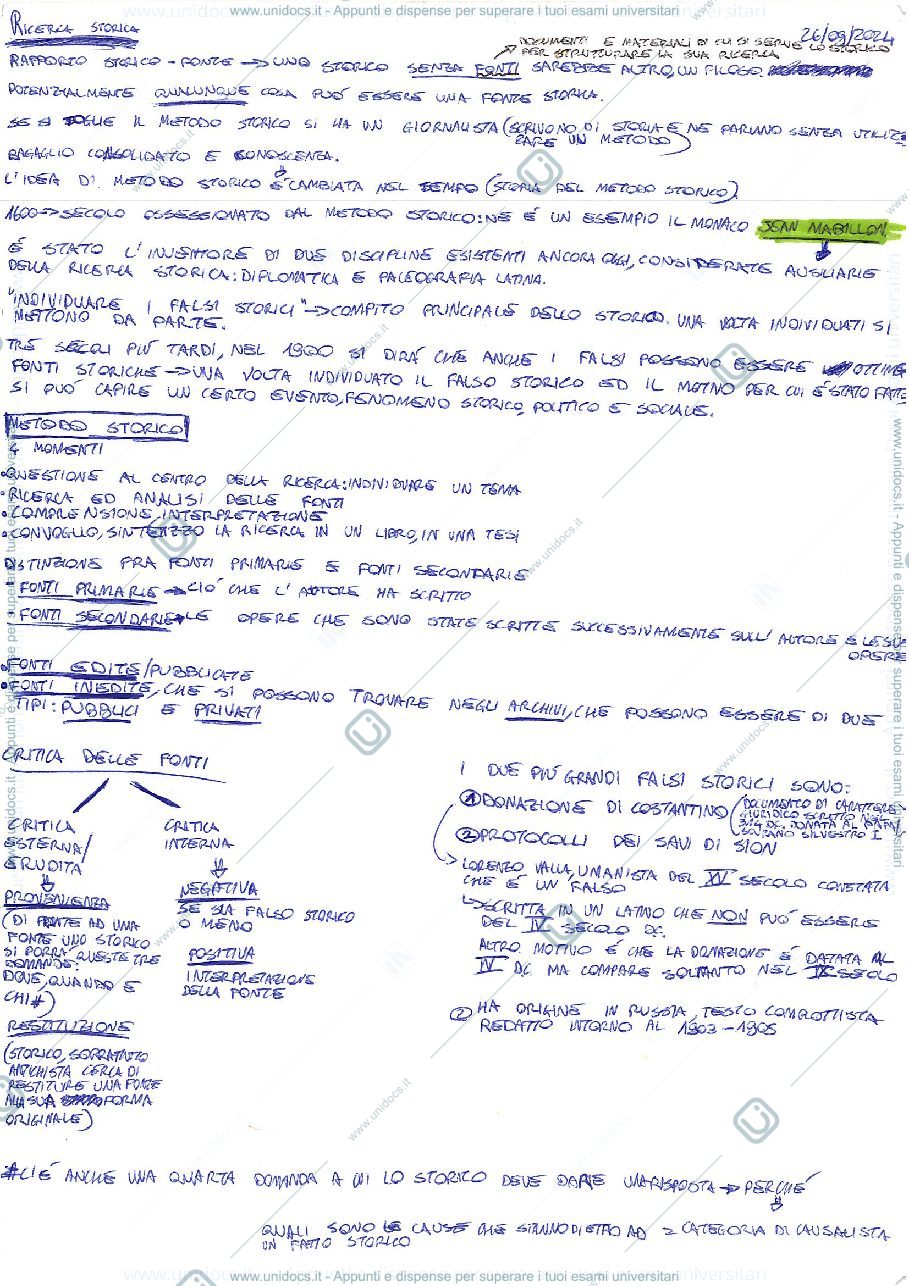 www.unidocs.it - Appunti e dispense per superare i tuoi esami universitari
RICERCA STORICA
26/09/2024
DOCUMENTI E MATERIALI DI CUI SI SERVE LO STORICO
PER STRUTTURARE LA SUA RICERCA
RAPPORTO STORICO - FONTE → UNO STORICO SENZA FONTI SAREBBE ALTRO, UN FILOSO
POTENZIALMENTE QUALUNQUE COSA PUÓ ESSERE UNA FONTE STORICA.
SE SI TOGLIE IL METODO STORICO SI HA UN GIORNALISTA (SCRIVONO DI STORIA E NE PARLANO SENZA UTILIZ
ZARE UN METODO)
BAGAGLIO CONSOLIDATO E CONOSCENZA.
L'IDEA DI METODO STORICO É CAMBIATA NEL TEMPO (STORIA DEL METODO STORICO).
1600 → SECOLO OSSESSIONATO DAL METODO STORICO: NE É UN ESEMPIO IL MONACO JEAN MABILLON.
É STATO L'INVENTORE DI DUE DISCIPLINE ESISTENTI ANCORA OGGI, CONSIDERATE AUSILIARIE
DELLA RICERCA STORICA: DIPLOMATICA E PALEOGRAFIA LATINA.
"INDIVIDUARE I FALSI STORICI" → COMPITO PRINCIPALE DELLO STORICO. UNA VOLTA INDIVIDUATI SI
METTONO DA PARTE.
TRE SECOLI PIÙ TARDI, NEL 1900 SI DIRÁ CHE ANCHE I FALSI POSSONO ESSERE OTTIME
FONTI STORICHE → UNA VOLTA INDIVIDUATO IL FALSO STORICO ED IL MOTIVO PER CUI É STATO FATTO
SI PUÓ CAPIRE UN CERTO EVENTO, FENOMENO STORICO, POLITICO E SOCIALE.
METODO STORICO
4 MOMENTI
• QUESTIONE AL CENTRO DELLA RICERCA: INDIVIDUARE UN TEMA
• RICERCA ED ANALISI DELLE FONTI
• COMPRENSIONE, INTERPRETAZIONE
• CONVOGLIO, SINTETIZZO LA RICERCA IN UN LIBRO, IN UNA TESI
DISTINZIONE FRA FONTI PRIMARIE E FONTI SECONDARIE
• FONTI PRIMARIE → CIÓ CHE L'AUTORE HA SCRITTO
• FONTI SECONDARIE → LE OPERE CHE SONO STATE SCRITTE SUCCESSIVAMENTE SULL'AUTORE E LE SUE
OPERE
• FONTI EDITE/PUBBLICATE
• FONTI INEDITE, CHE SI POSSONO TROVARE NEGLI ARCHIVI, CHE POSSONO ESSERE DI DUE
TIPI: PUBBLICI E PRIVATI
CRITICA DELLE FONTI
CRITICA
ESTERNA/
ERUDITA
PROVENIENZA
(DI FRONTE AD UNA
FONTE UNO STORICO
SI PORRÁ QUESTE TRE
DOMANDE:
DOVE, QUANDO E
CHI#)
RESTITUZIONE
(STORICO, SOPRATTUTTO
ANTICHISTA CERCA DI
RESTITUIRE UNA FONTE
ALLA SUA FORMA
ORIGINALE)
CRITICA
INTERNA
NEGATIVA
SE SIA FALSO STORICO
O MENO
POSITIVA
INTERPRETAZIONE
DELLA FONTE
I DUE PIÙ GRANDI FALSI STORICI SONO:
① DONAZIONE DI COSTANTINO (DOCUMENTO DI CARATTERE
GIURIDICO SCRITTO NEL
314 DC. DONATA AL PAPA/
SOVRANO SILVESTRO I
② PROTOCOLLI DEI SAVI DI SION
LORENZO VALLA, UMANISTA DEL XV SECOLO CONSTATA
CHE É UN FALSO
↳ SCRITTA IN UN LATINO CHE NON PUÓ ESSERE
DEL IV SECOLO DC.
ALTRO MOTIVO É CHE LA DONAZIONE É DATATA AL
IV DC. MA COMPARE SOLTANTO NEL IX SECOLO
② HA ORIGINE IN RUSSIA, TESTO COMPLOTTISTA
REDATTO INTORNO AL 1903 - 1905
# C'É ANCHE UNA QUARTA DOMANDA A CUI LO STORICO DEVE DARE UNA RISPOSTA → PERCHÉ
QUALI SONO LE CAUSE CHE STANNO DIETRO AD
UN FATTO STORICO
2 CATEGORIA DI CAUSALISTA
www.unidocs.it - Appunti e dispense per superare i tuoi esami universitari